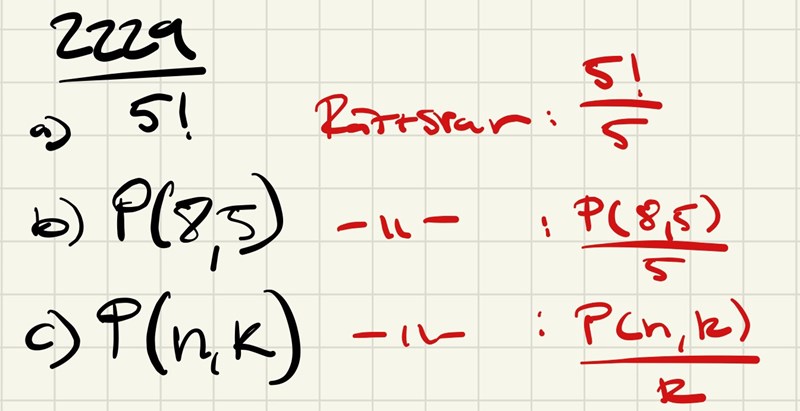 2229
a) 5! Rätt svar : 5!/5
b) P(8,5) -||- : P(8,5)/5
c) P(n,k) -||- : P(n,k)/k